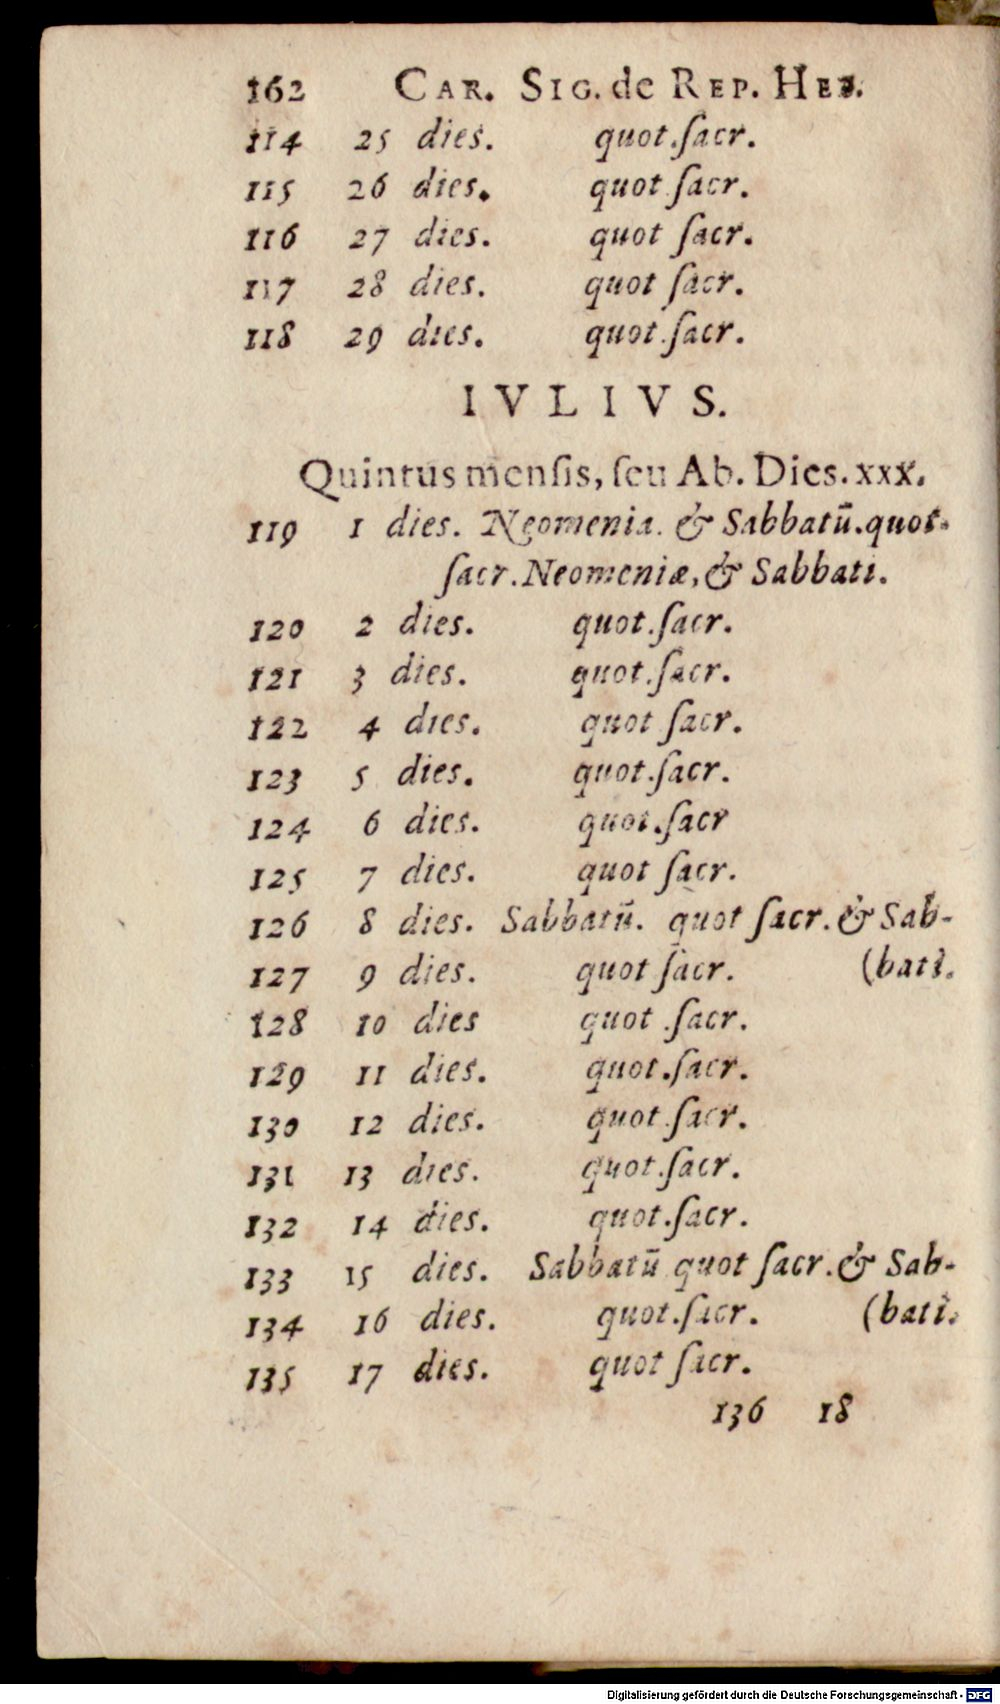 162 CAR. SIG. de REP. HEB.
114 25 dies. quot.ſacr.
115 26 dies. quot ſacr.
116 27 dies. quot ſacr.
117 28 dies. quot ſacr.
118 29 dies. quot.ſacr.
IVLIVS.
Quintus menſis, ſeu Ab. Dies. xxx.
119 1 dies. Neomenia. & Sabbatū.quot.
ſacr. Neomeniæ, & Sabbati.
120 2 dies. quot.ſacr.
121 3 dies. quot.ſacr.
122 4 dies. quot ſacr.
123 5 dies. quot.ſacr.
124 6 dies. quot.ſacr
125 7 dies. quot ſacr.
126 8 dies. Sabbatū. quot ſacr. & Sab-
127 9 dies. quot ſacr. (bati.
128 10 dies quot .ſacr.
129 11 dies. quot.ſacr.
130 12 dies. quot.ſacr.
131 13 dies. quot.ſacr.
132 14 dies. quot.ſacr.
133 15 dies. Sabbatū quot ſacr. & Sab-
134 16 dies. quot.ſacr. (bati.
135 17 dies. quot ſacr.
136 18
Digitalisierung gefördert durch die Deutsche Forschungsgemeinschaft - DFG